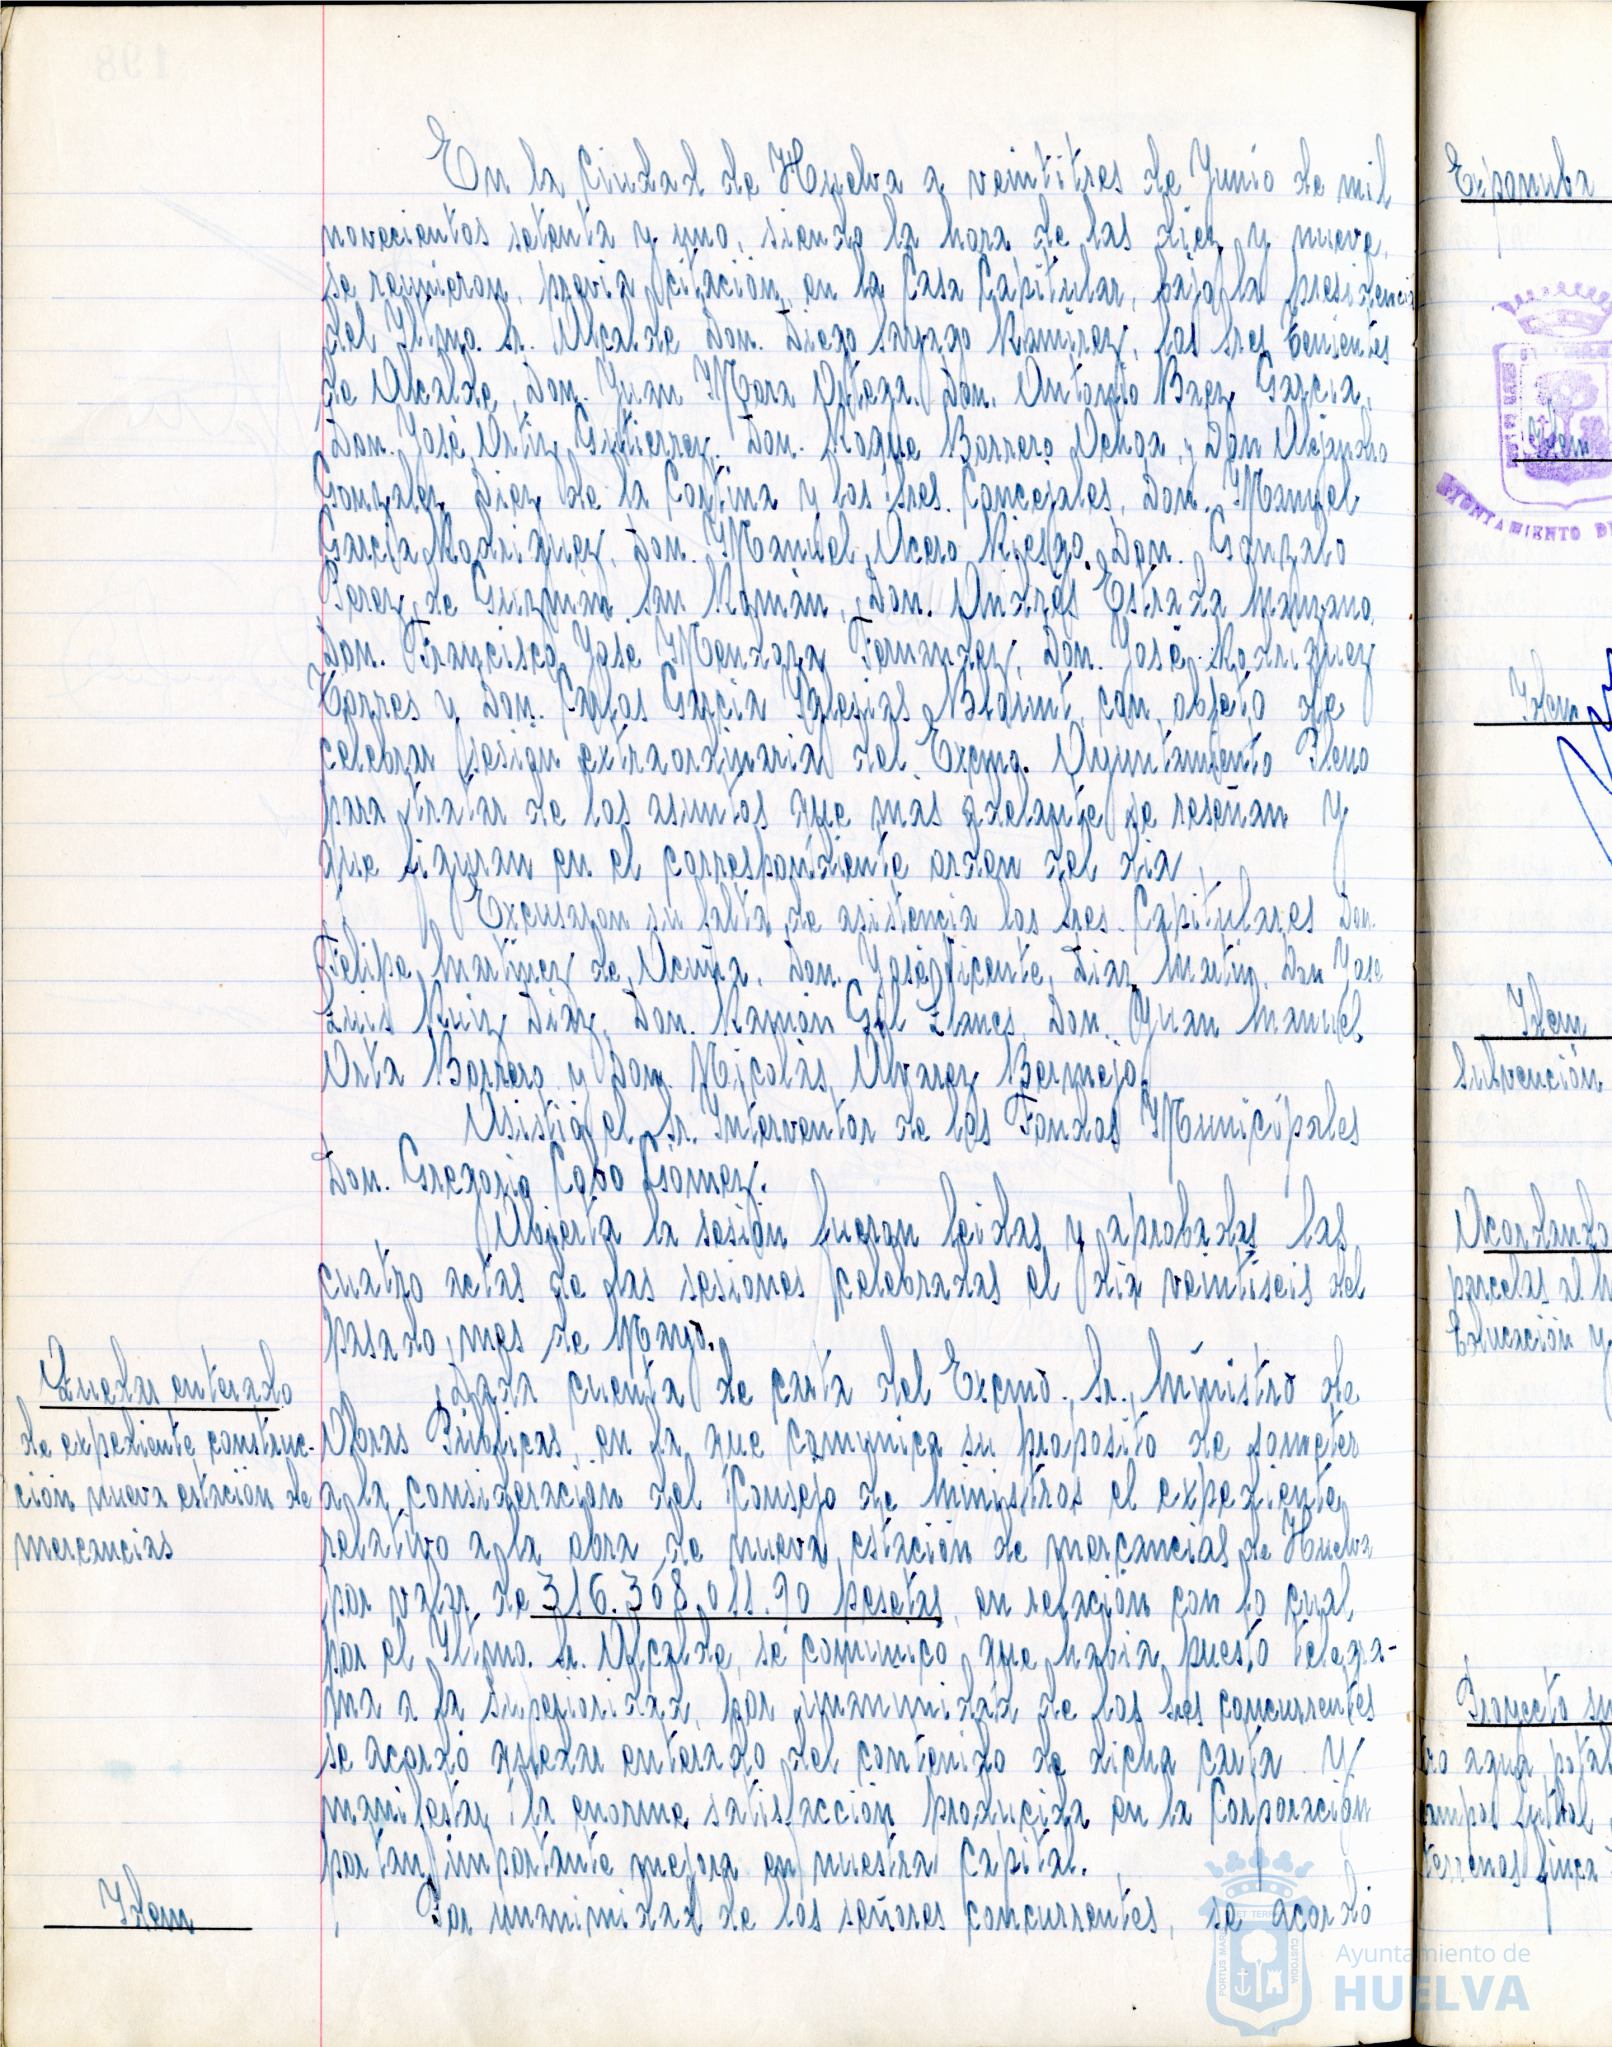 En la Ciudad de Huelva a veintitres de Junio de mil
novecientos setenta y uno, siendo la hora de las diez y nueve,
se reunieron, previa citación, en la Casa Capitular, bajo la presidencia
del Iltmo. Sr. Alcalde Don. Diego Sayago Ramírez, los Sres Tenientes
de Alcalde, Don. Juan Mora Ortega, Don. Antonio Baez García,
Don. José Ortiz Gutierrez, Don. Roque Barrero Ochoa, y Don Alejandro
Gonzalez Diez de la Cortina y los Sres. Concejales, Don. Manuel
García Rodriguez, Don. Manuel Otero Riesgo, Don. Gonzalo
Perez de Guzmán San Román, Don. Andrés Estrada Manzano,
Don. Francisco José Mendoza Fernandez, Don. José Rodriguez
Torres y Don. Carlos García Iglesias con objeto de
celebrar sesión extraordinaria del Excmo. Ayuntamiento Pleno
para tratar de los asuntos que mas adelante se reseñan y
que figuran en el correspondiente orden del dia.
Excusaron su falta de asistencia los Sres. Capitulares Don.
Felipe Martinez de Acuña, Don. José Vicente Diaz Martin, Don José
Luis Ruiz Diaz, Don. Ramón Gil Llanes, Don. Juan Manuel
Orta Borrero y Don. Nicolás Alvarez Bermejo.
Asistió el Sr. Interventor de los Fondos Municipales
Don. Gregorio Gomez.
Abierta la sesión fueron leidas y aprobadas las
cuatro actas de las sesiones celebradas el dia veintiseis del
pasado mes de Mayo.
Quedar enterado
de expediente construc-
ción nueva estación de
mercancias
Dada cuenta de carta del Excmo. Sr. Ministro de
Obras Públicas, en la que comunica su proposito de someter
a la consideración del Consejo de Ministros el expediente
relativo a la obra de nueva estación de mercancias de Huelva
por valor de 316.308.011.90 pesetas, en relación con lo cual
por el Iltmo. Sr. Alcalde, se comunico que habia puesto telegra-
ma a la Superioridad, por unanimidad de los Sres concurrentes
se acordó quedar enterado del contenido de dicha carta y
manifestar la enorme satisfacción producida en la Corporación
por tan importante mejora en nuestra Capital.
Idem
Por unanimidad de los señores concurrentes, se acordó
PORTUS MARIS ET TERRAE CUSTODIA
Ayuntamiento de
HUELVA
Idem
AYUNTAMIENTO DE
Idem
Idem
Subvención
Acordando
parcelas al
Educación y
Proyecto
agua
futbol
terrenos finca